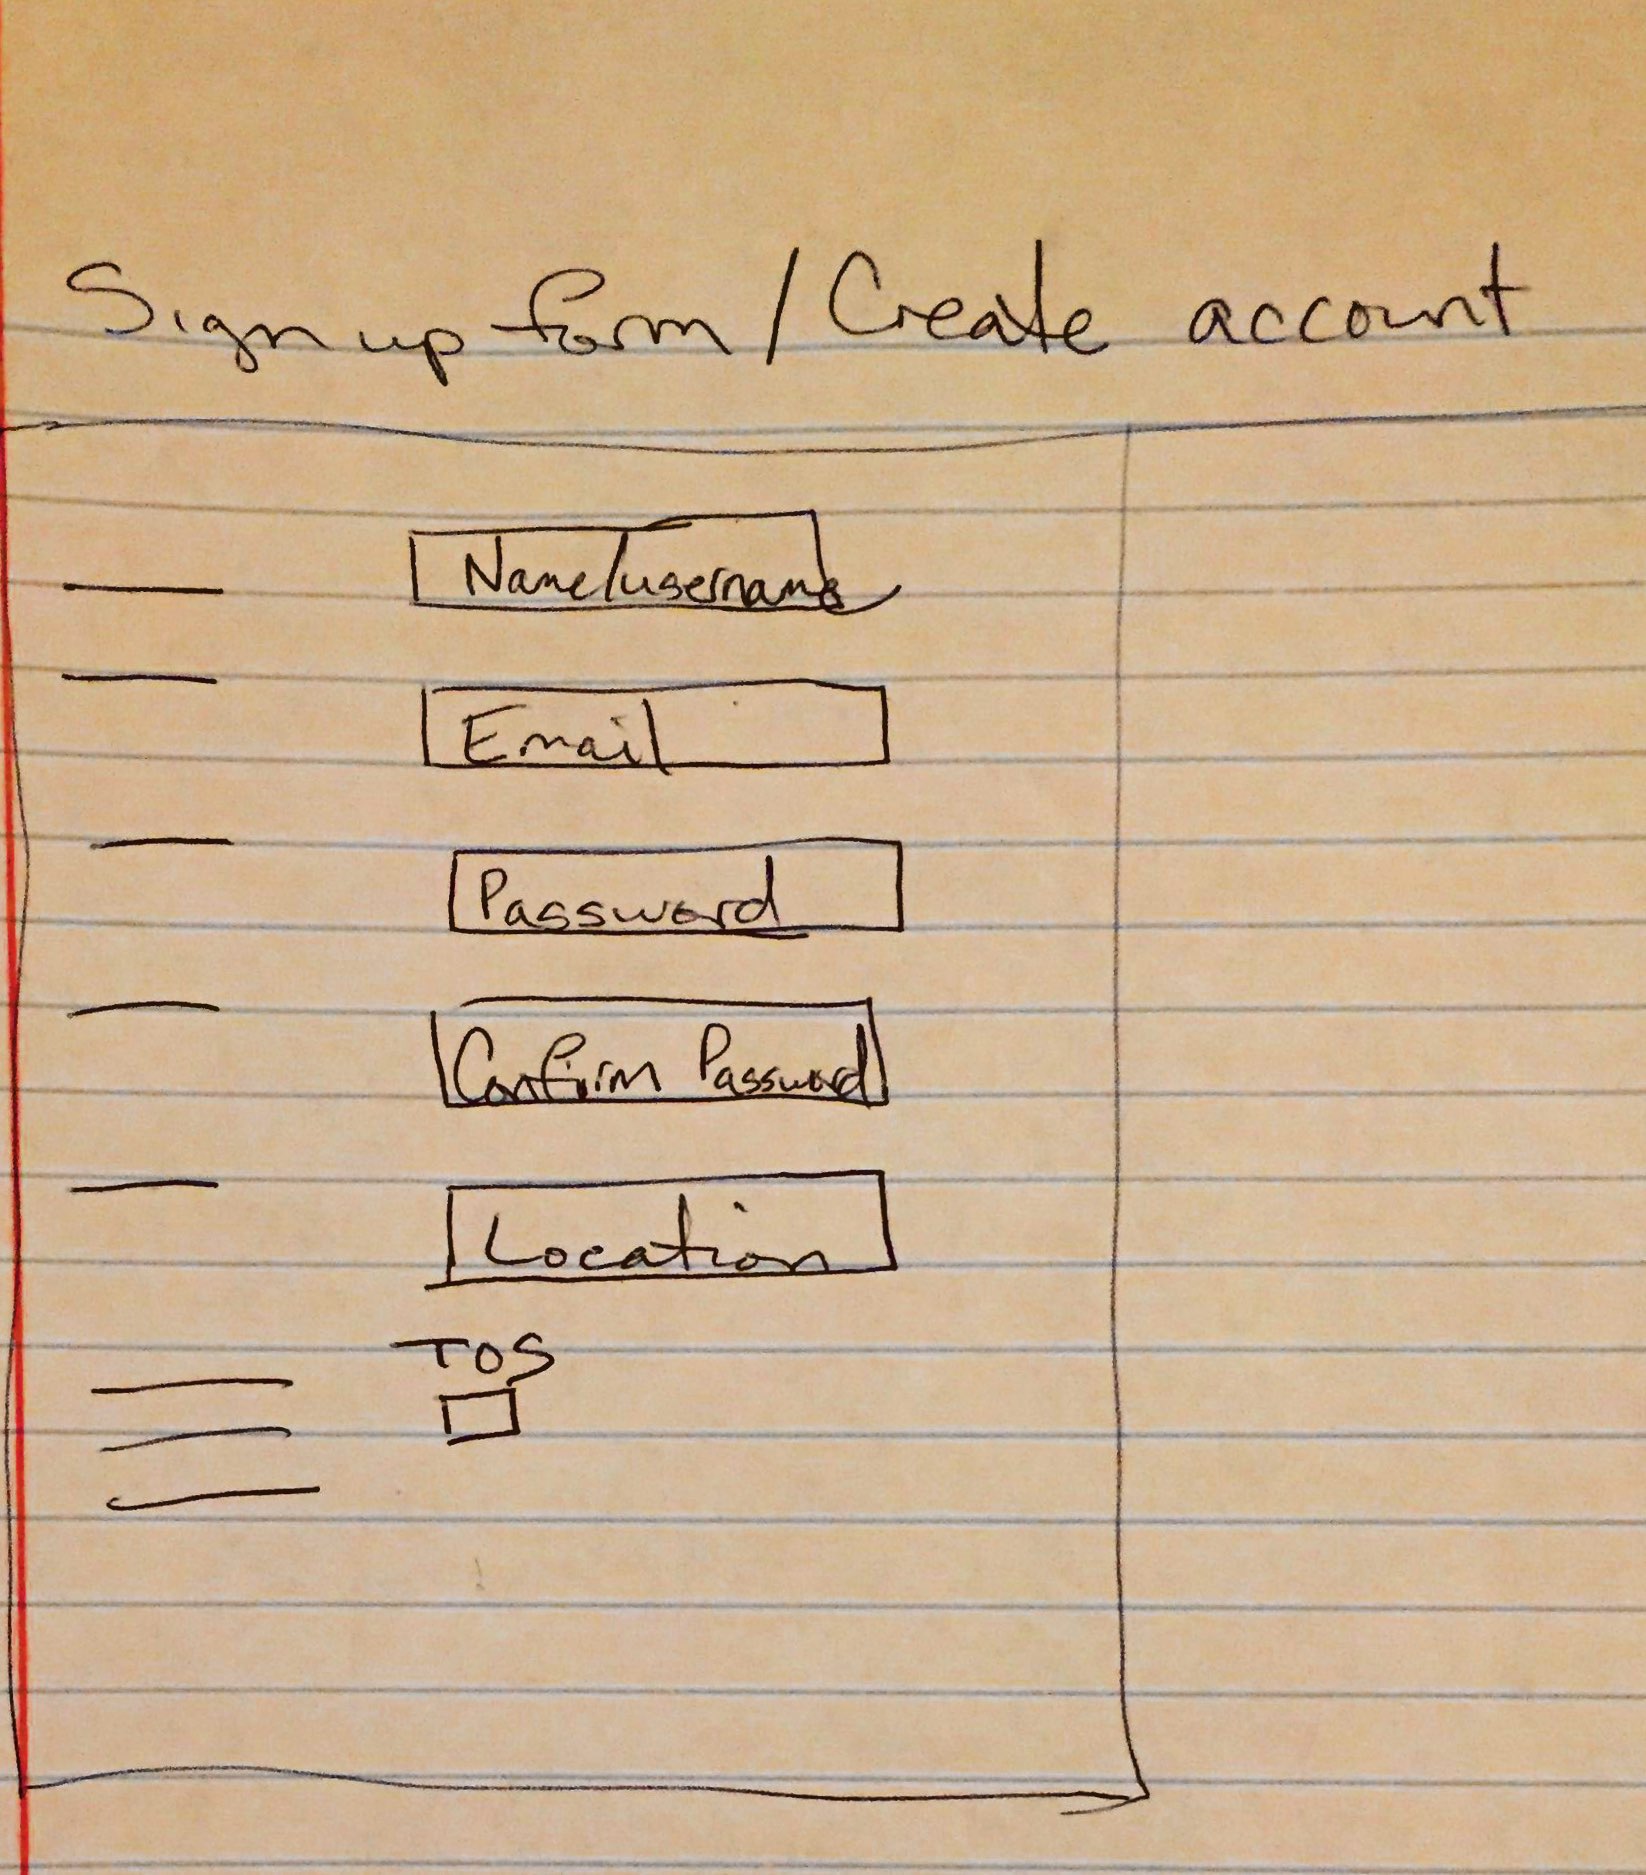 Sign up form / Create account
Name/username
Email
Password
Confirm Password
Location
TOS